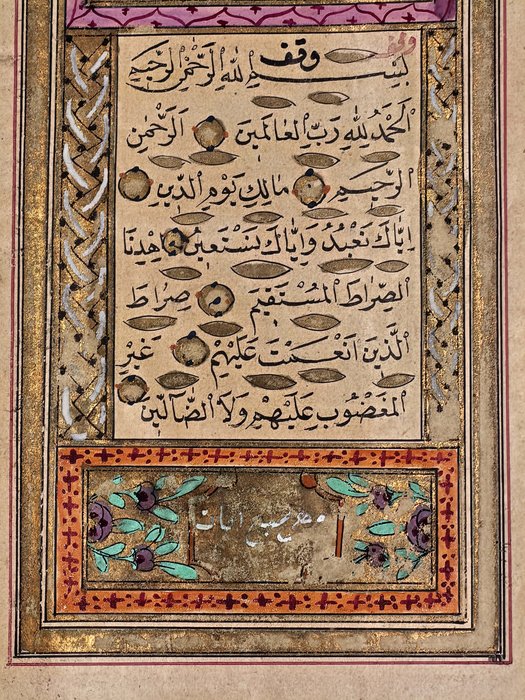 وقف
وقف
بسم الله الرحمن الرحيم
الحمد لله رب العالمين الرحمن
الرحيم مالك يوم الدين
اياك نعبد واياك نستعين اهدنا
الصراط المستقيم صراط
الذين انعمت عليهم غير
المغضوب عليهم ولا الضالين
سبع ايات